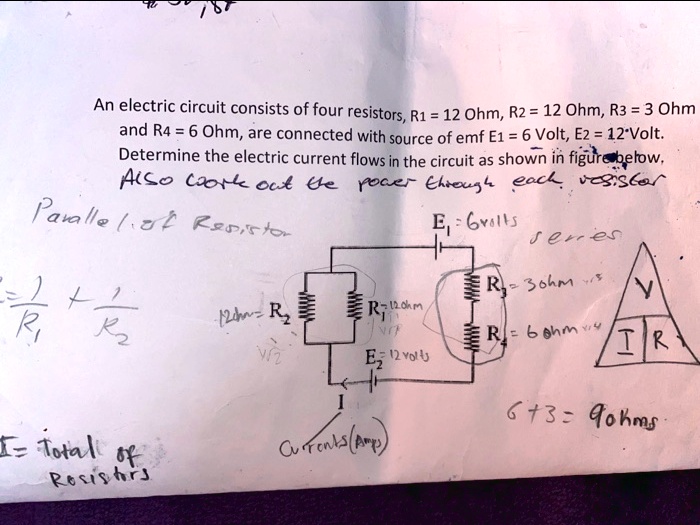 An electric circuit consists of four resistors, R1 = 12 Ohm, R2 = 12 Ohm, R3 = 3 Ohm
and R4 = 6 Ohm, are connected with source of emf E1 = 6 Volt, E2 = 12 Volt.
Determine the electric current flows in the circuit as shown in figure below,
Also work out the power through each resistor
Parallel of Resistor
E1 = 6volts
series
R3 = 3ohm
V
= 1/R1 + 1/R2
12ohm = R2
R1 = 12ohm
R4 = 6ohm
I R
E2 = 12 volts
I
6+3 = 9ohms
Currents (Amps)
I = Total of
Resistors